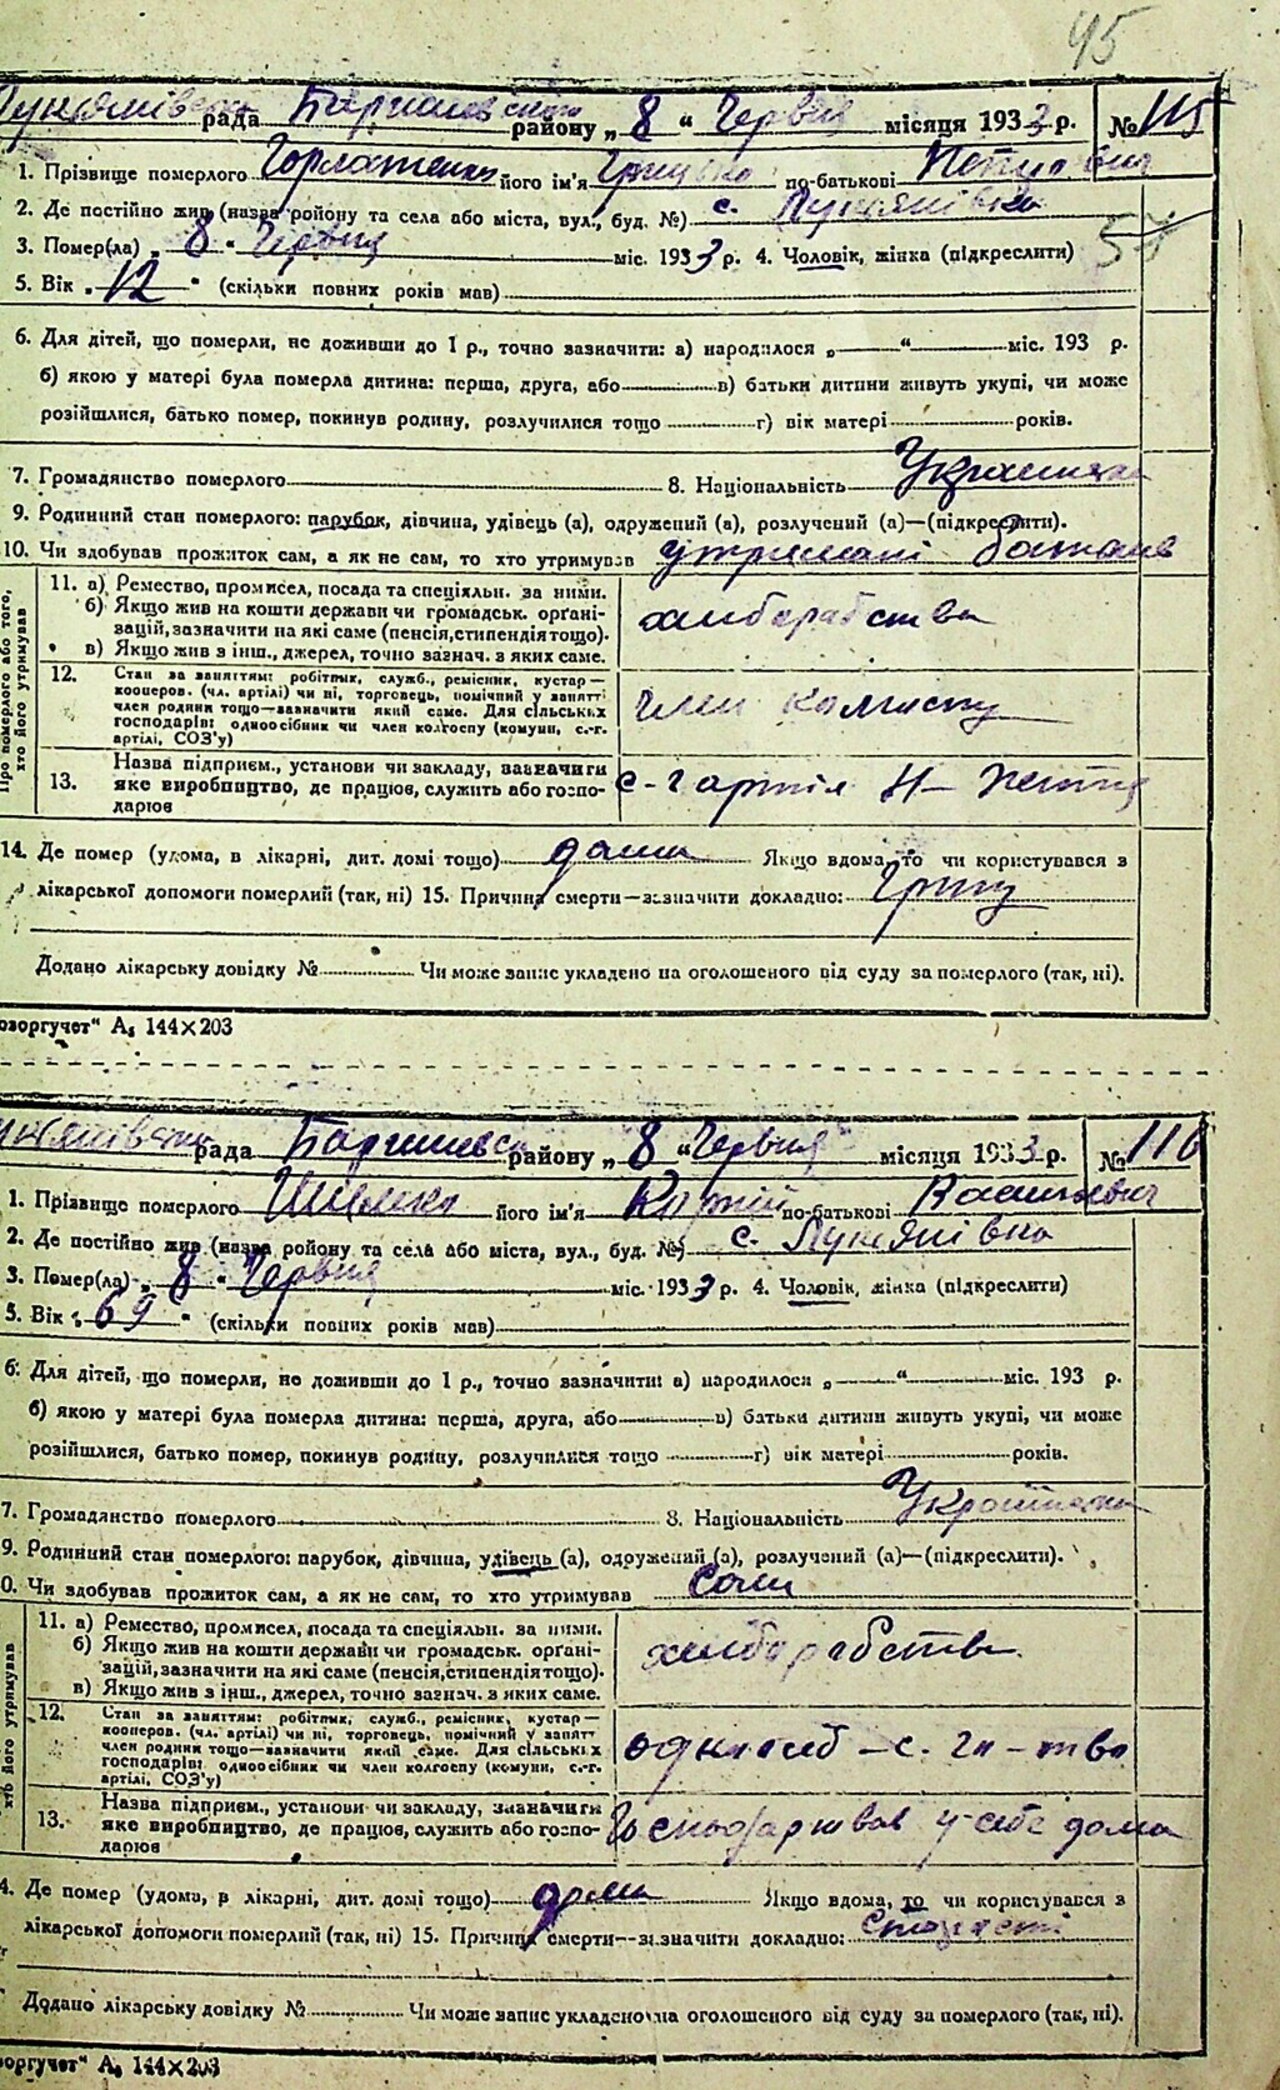 45
Лукянівська рада Баришевського району „ 8 “ Червня місяця 1933 р. № 115
1. Прізвище померлого його ім'я Грицько по-батькові
2. Де постійно жив (назва району та села або міста, вул., буд. №) с. Лукянівка
3. Помер(ла) „ 8 “ Червня міс. 1933 р. 4. Чоловік, жінка (підкреслити)
5. Вік „ 12 “ (скільки повних років мав)
6. Для дітей, що померли, не доживши до 1 р., точно зазначити: а) народилося „ “ міс. 193 р.
б) якою у матері була померла дитина: перша, друга, або в) батьки дитини живуть укупі, чи може
розійшлися, батько помер, покинув родину, розлучилися тощо г) вік матері років.
7. Громадянство померлого 8. Національність
9. Родинний стан померлого: парубок, дівчина, удівець (а), одружений (а), розлучений (а)—(підкреслити).
10. Чи здобував прожиток сам, а як не сам, то хто утримував
Про померлого або того, хто його утримував
11. а) Ремество, промисел, посада та спеціяльн. за ними.
б) Якщо жив на кошти держави чи громадськ. орґані-
зацій, зазначити на які саме (пенсія, стипендія тощо).
в) Якщо жив з інш., джерел, точно зазнач. з яких саме.
хліборобство
12. Стан за заняттям: робітник, служб., ремісник, кустар—
кооперов. (чл. артілі) чи ні, торговець, помічний у занятті
член родини тощо—зазначити який саме. Для сільських
господарів: одноосібник чи член колгоспу (комуни, с.-г.
артілі, СОЗ'у)
член колгоспу
13. Назва підприєм., установи чи закладу, зазначити
яке виробництво, де працює, служить або госпо-
дарює
с-г артіль
14. Де помер (удома, в лікарні, дит. домі тощо) дома Якщо вдома, то чи користувався з
лікарської допомоги померлий (так, ні) 15. Причина смерти—зазначити докладно: Грип
Додано лікарську довідку № Чи може запис укладено на оголошеного від суду за померлого (так, ні).
озоргучет“ А₅ 144×203
рада Баришевськ району „ 8 “ Червня місяця 1933 р. № 116
1. Прізвище померлого його ім'я по-батькові Васильович
2. Де постійно жив (назва району та села або міста, вул., буд. №) с. Лукянівка
3. Помер(ла) „ 8 “ Червня міс. 1933 р. 4. Чоловік, жінка (підкреслити)
5. Вік „ 69 “ (скільки повних років мав)
6. Для дітей, що померли, не доживши до 1 р., точно зазначити: а) народилося „ “ міс. 193 р.
б) якою у матері була померла дитина: перша, друга, або в) батьки дитини живуть укупі, чи може
розійшлися, батько помер, покинув родину, розлучилися тощо г) вік матері років.
7. Громадянство померлого 8. Національність
9. Родинний стан померлого: парубок, дівчина, удівець (а), одружений (а), розлучений (а)—(підкреслити).
0. Чи здобував прожиток сам, а як не сам, то хто утримував Сам
хто його утримував
11. а) Ремество, промисел, посада та спеціяльн. за ними.
б) Якщо жив на кошти держави чи громадськ. орґані-
зацій, зазначити на які саме (пенсія, стипендія тощо).
в) Якщо жив з інш., джерел, точно зазнач. з яких саме.
хліборобств
12. Стан за заняттям: робітник, служб., ремісник, кустар—
кооперов. (чл. артілі) чи ні, торговець, помічний у занятті
член родини тощо—зазначити який саме. Для сільських
господарів: одноосібник чи член колгоспу (комуни, с.-г.
артілі, СОЗ'у)
13. Назва підприєм., установи чи закладу, зазначити
яке виробництво, де працює, служить або госпо-
дарює
Господарював у себе дома
4. Де помер (удома, в лікарні, дит. домі тощо) дома Якщо вдома, то чи користувався з
лікарської допомоги померлий (так, ні) 15. Причина смерти—зазначити докладно:
Додано лікарську довідку № Чи може запис укладено на оголошеного від суду за померлого (так, ні).
зоргучет“ А₅ 144×203